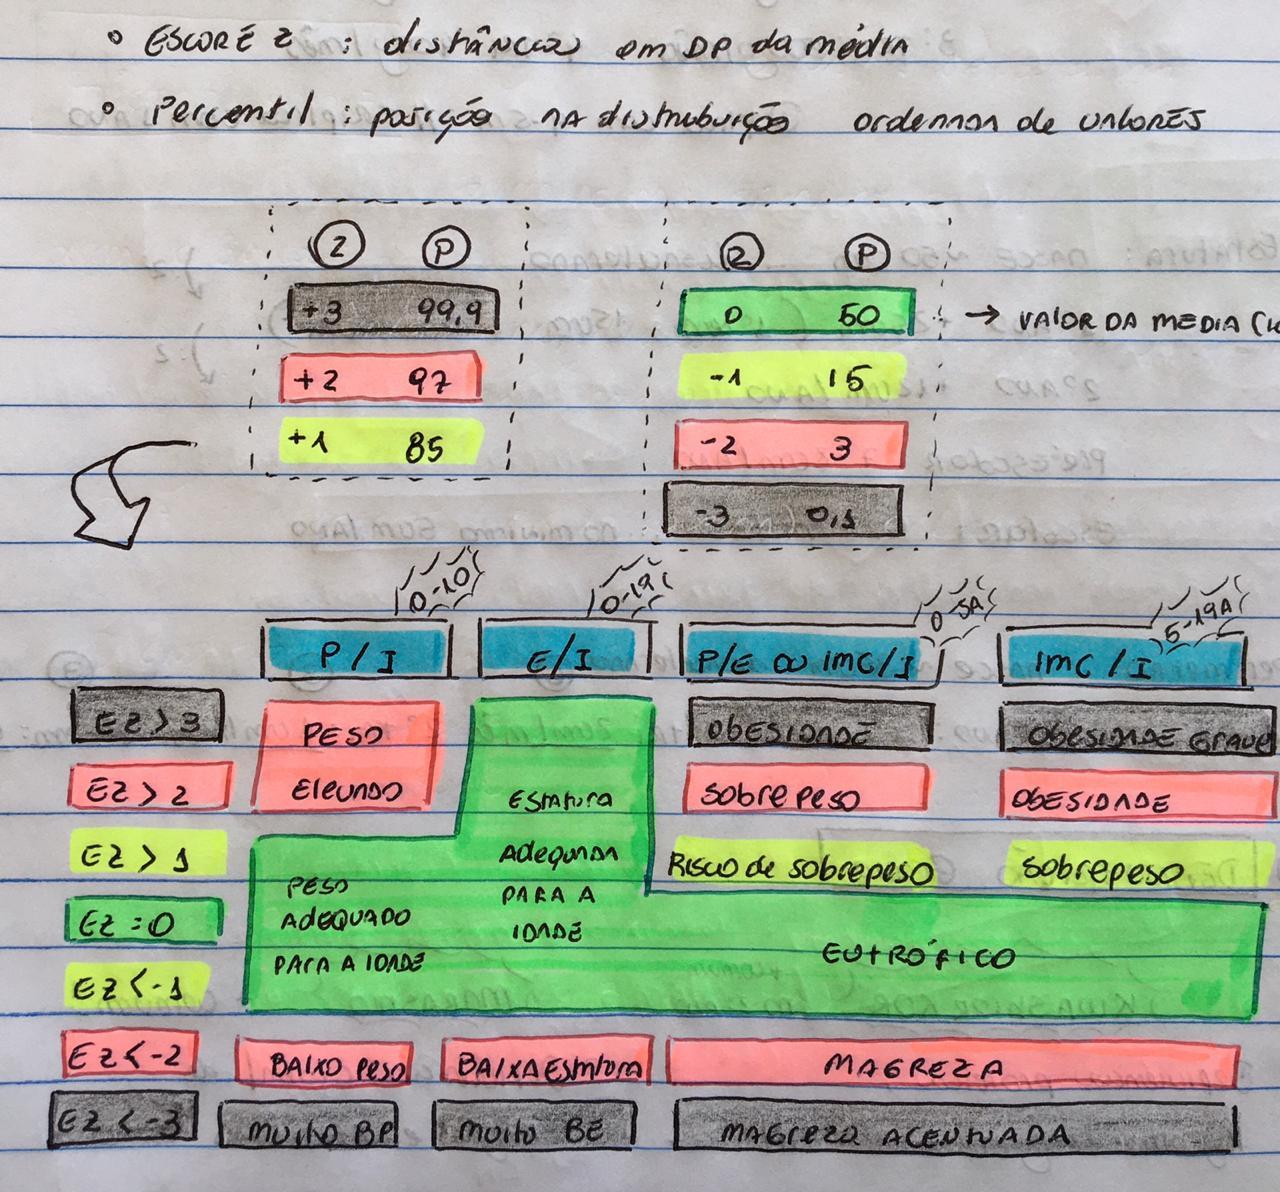 ° ESCORE Z : distância em DP da média
° Percentil : posição na distribuição ordennan de valores
Z P
+3 99,9
+2 97
+1 85
Z P
0 50 → VALOR DA MEDIA
-1 15
-2 3
-3 0,1
0-10 0-19 0-5A 5-19A
P/I E/I P/E OU IMC/I IMC/I
EZ > 3 OBESIDADE OBESIDADE GRAVE
EZ > 2 PESO ELEVADO SOBREPESO OBESIDADE
EZ > 1 RISCO DE SOBREPESO SOBREPESO
EZ = 0 PESO ADEQUADO PARA A IDADE ESTATURA ADEQUADA PARA A IDADE EUTRÓFICO
EZ < -1
EZ < -2 BAIXO PESO BAIXA ESTATURA MAGREZA
EZ < -3 MUITO BP MUITO BE MAGREZA ACENTUADA